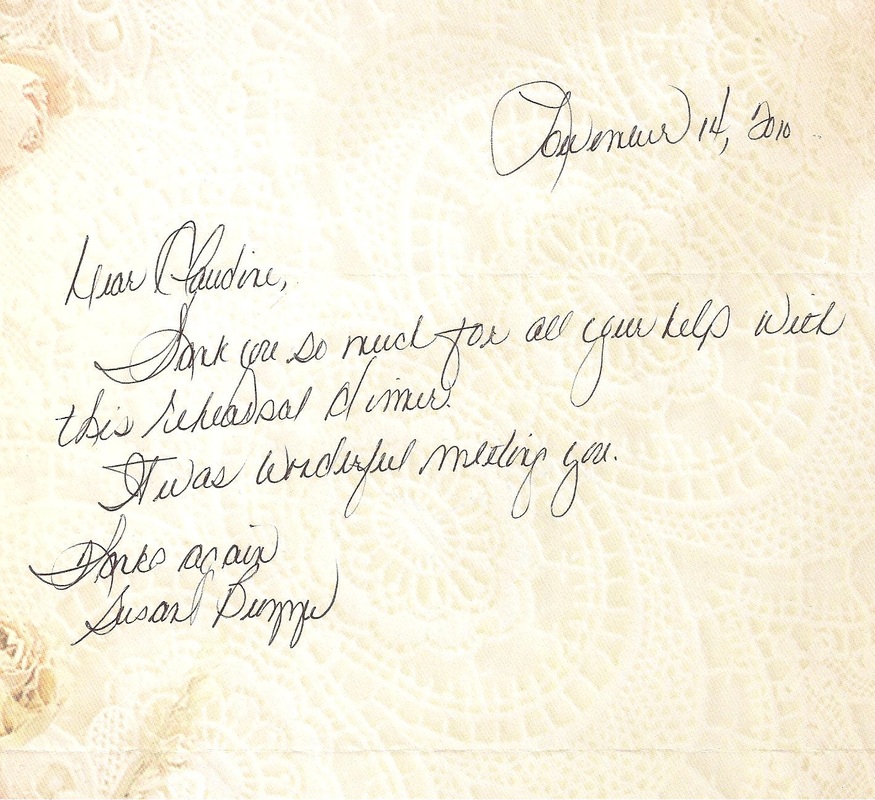 November 14, 2010
Dear Claudine,
Thank you so much for all your help with
this rehearsal dinner.
It was wonderful meeting you.
Thanks again
Susan